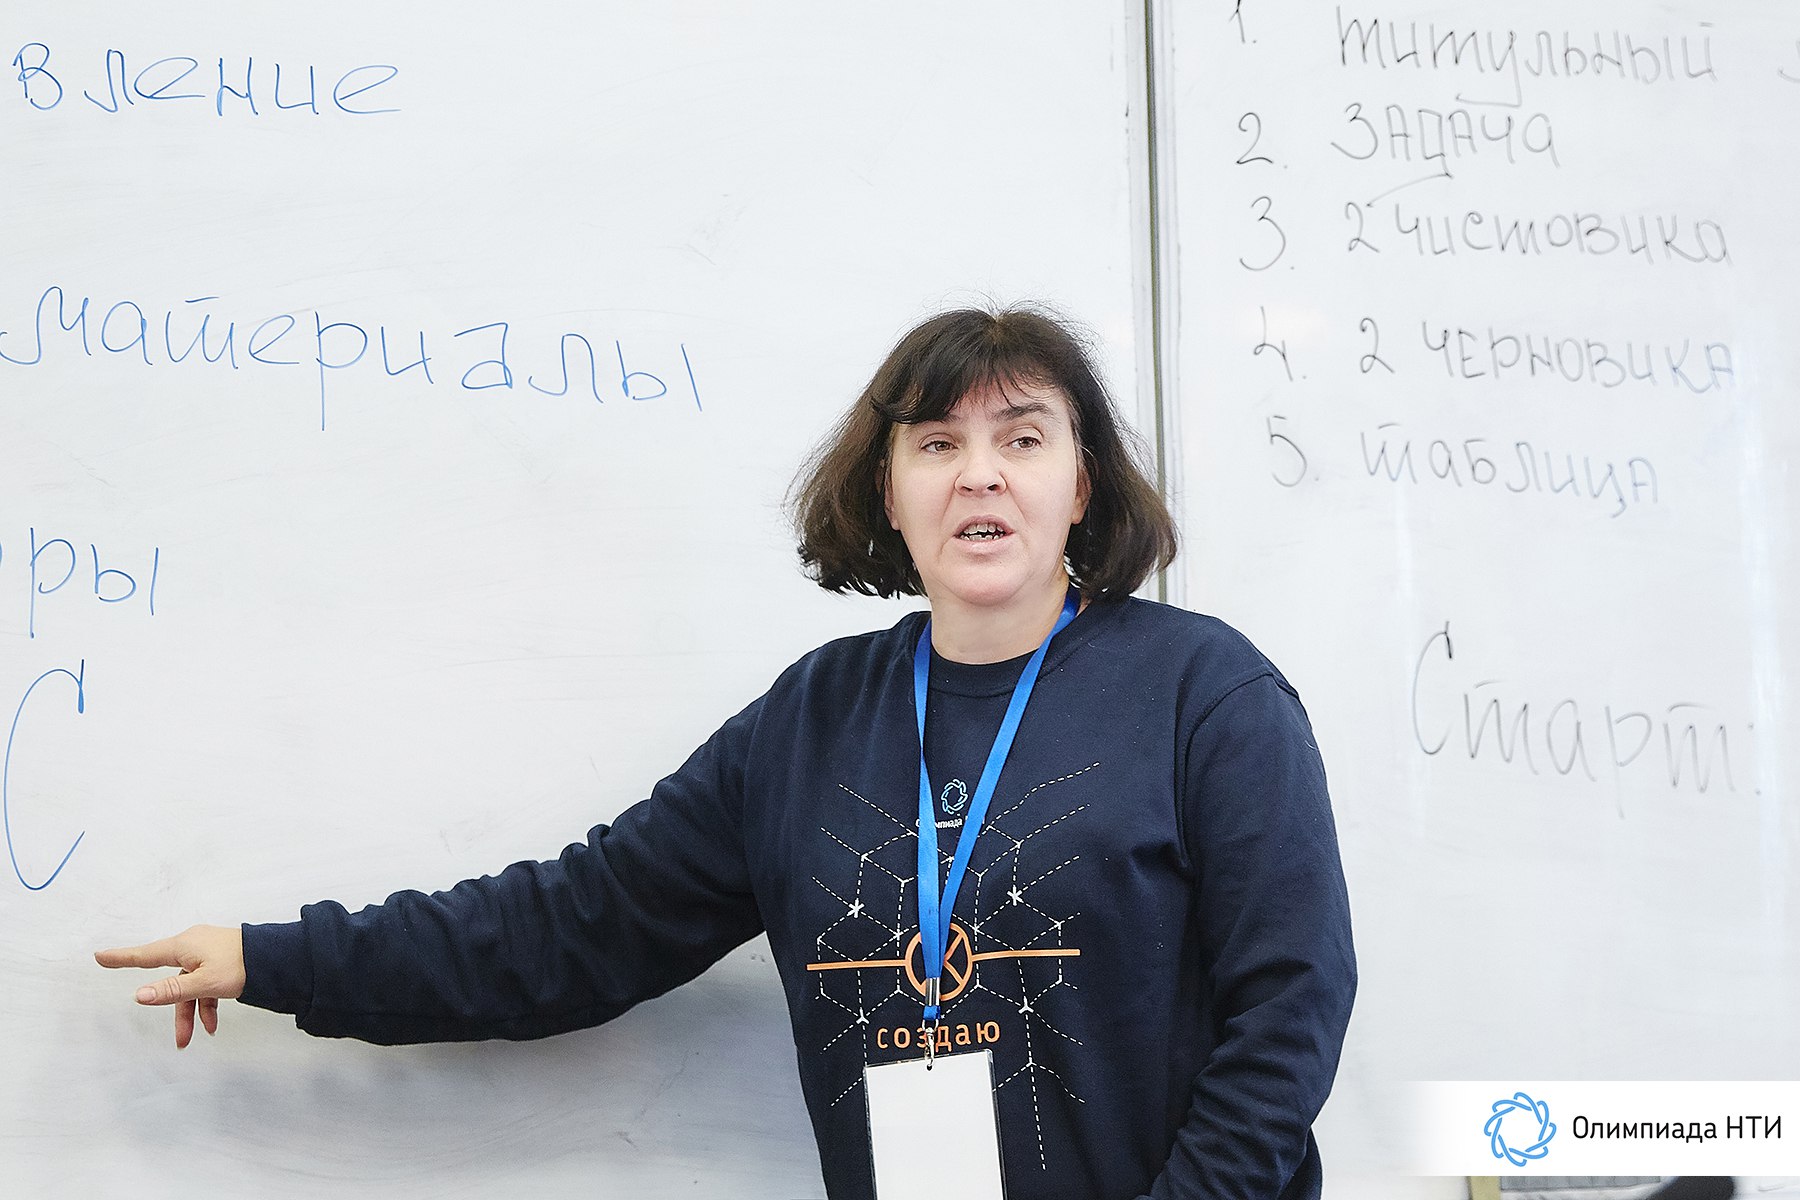 вление
материалы
ры
С
1. титульный
2. ЗАДАЧА
3. 2 чистовика
4. 2 ЧЕРНОВИКА
5. таблица
Старт:
Олимпиада
создаю
Олимпиада НТИ